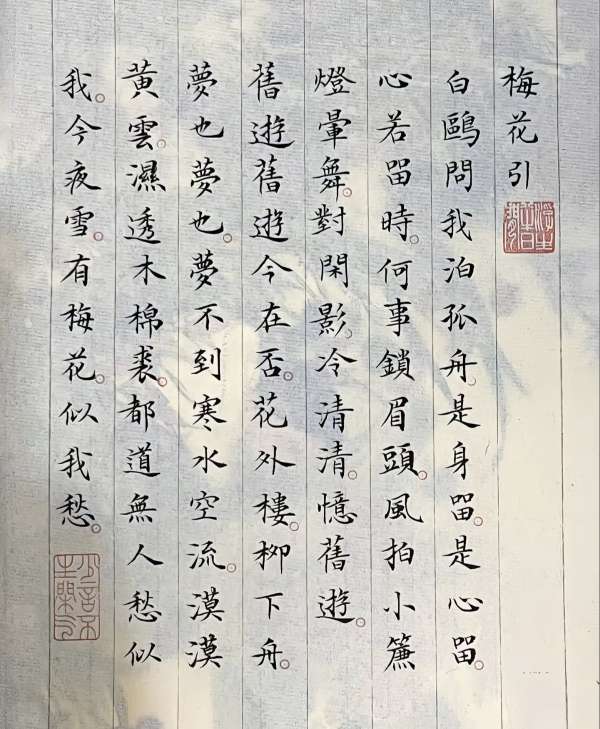 梅花引
白鷗問我泊孤舟是身留。是心留。
心若留時。何事鎖眉頭。風拍小簾
燈暈舞。對閑影。冷清清。憶舊遊。
舊遊舊遊今在否。花外樓。柳下舟。
夢也夢也。夢不到寒水空流。漠漠
黃雲。濕透木棉裘。都道無人愁似
我。今夜雪。有梅花。似我愁。